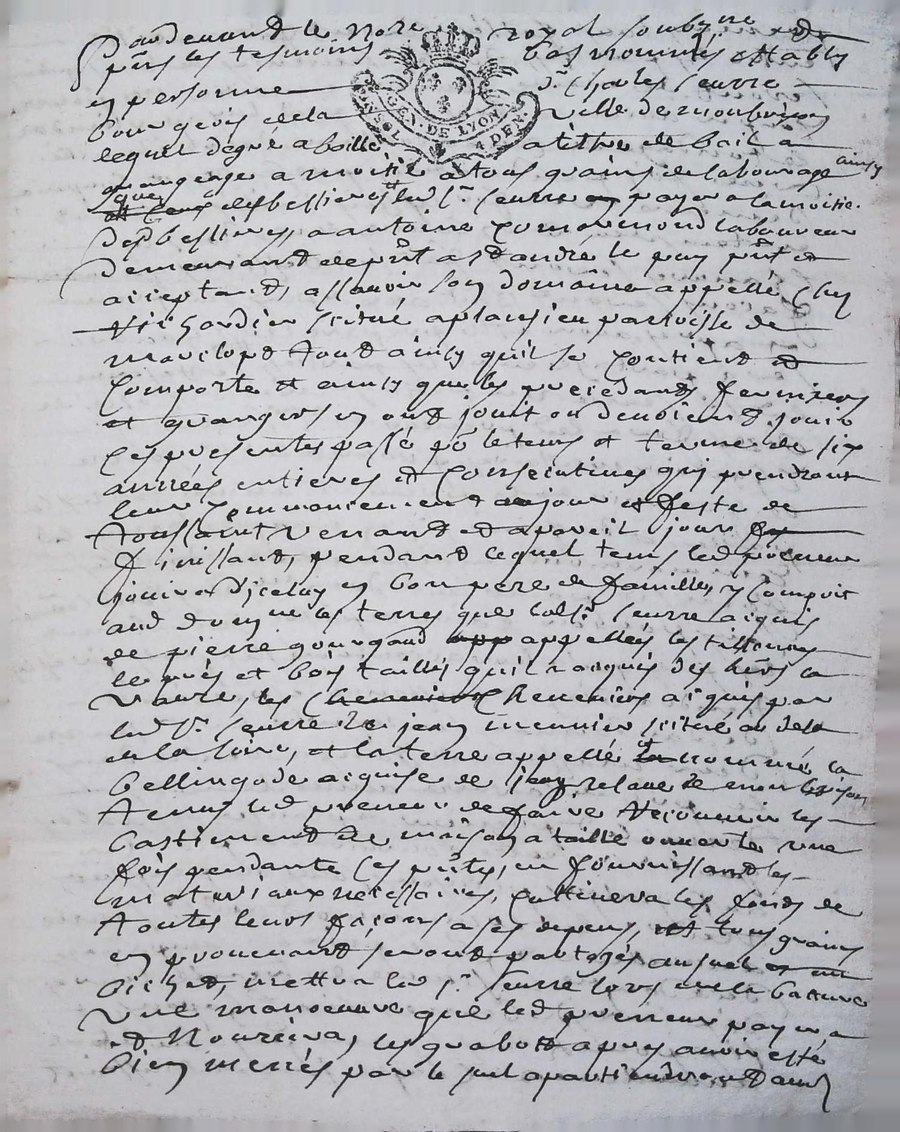 Pardevant le No.re royal soubz.né et
pñs les tesmoins bas nommés estably
en personne s.r Charles Seurre
bourgeois de la ville de montbrison
GEN. DE LYON
UN SOL 4 DEN.
lequel de gré a baillé a tiltre de bail a
grangeage a moitié a tous grains de labourage ainsy
que des bestieres led s.r Seurre payera la moitié
Desd bestieres, a antoine laboureur
Demeurant de pñt a s.t andré le puy pñt et
acceptant, assavoir son domaine appellé Chez
Richardier scitué a plancieu parroisse de
tout ainsy quil se contient et
Comporte et ainsy que les precedants fermiers
et grangers en ont jouit ou deubient jouir
Ces presentes passé po.r le tems et terme de six
années entieres et Consecutives qui prendront
leur Commancement au jour et feste de
toussaint venant et a pareil jour
finissant, pendant lequel tems led preneur
jouira Diceluy en bon pere de famille, y compris
aud domaine les terres que led s.r Seurre acquis
de pierre gourgaud appellés les
le prés et bois taillis quil acquis des hers la
Vaure, les Cheneviers acquis par
led s.r Seurre de jean meunier scitué au dela
de la loire, et la terre appellé nommé la
bellingode acquise de
tenus led preneur de faire recouvrir les
bastiments de maison a taille ouverte une
fois pendante ces pñtes, en fournissant les
materiaux necessaires, cultivera les fonds de
toutes leurs façons a ses depens, tous grains
en provenant seront partagés
bichet, mettra led s.r Seurre lors de la batture
une manoeuvre que led preneur payera
et nourrira, les apres avoir esté
bien par le apartiendront aud